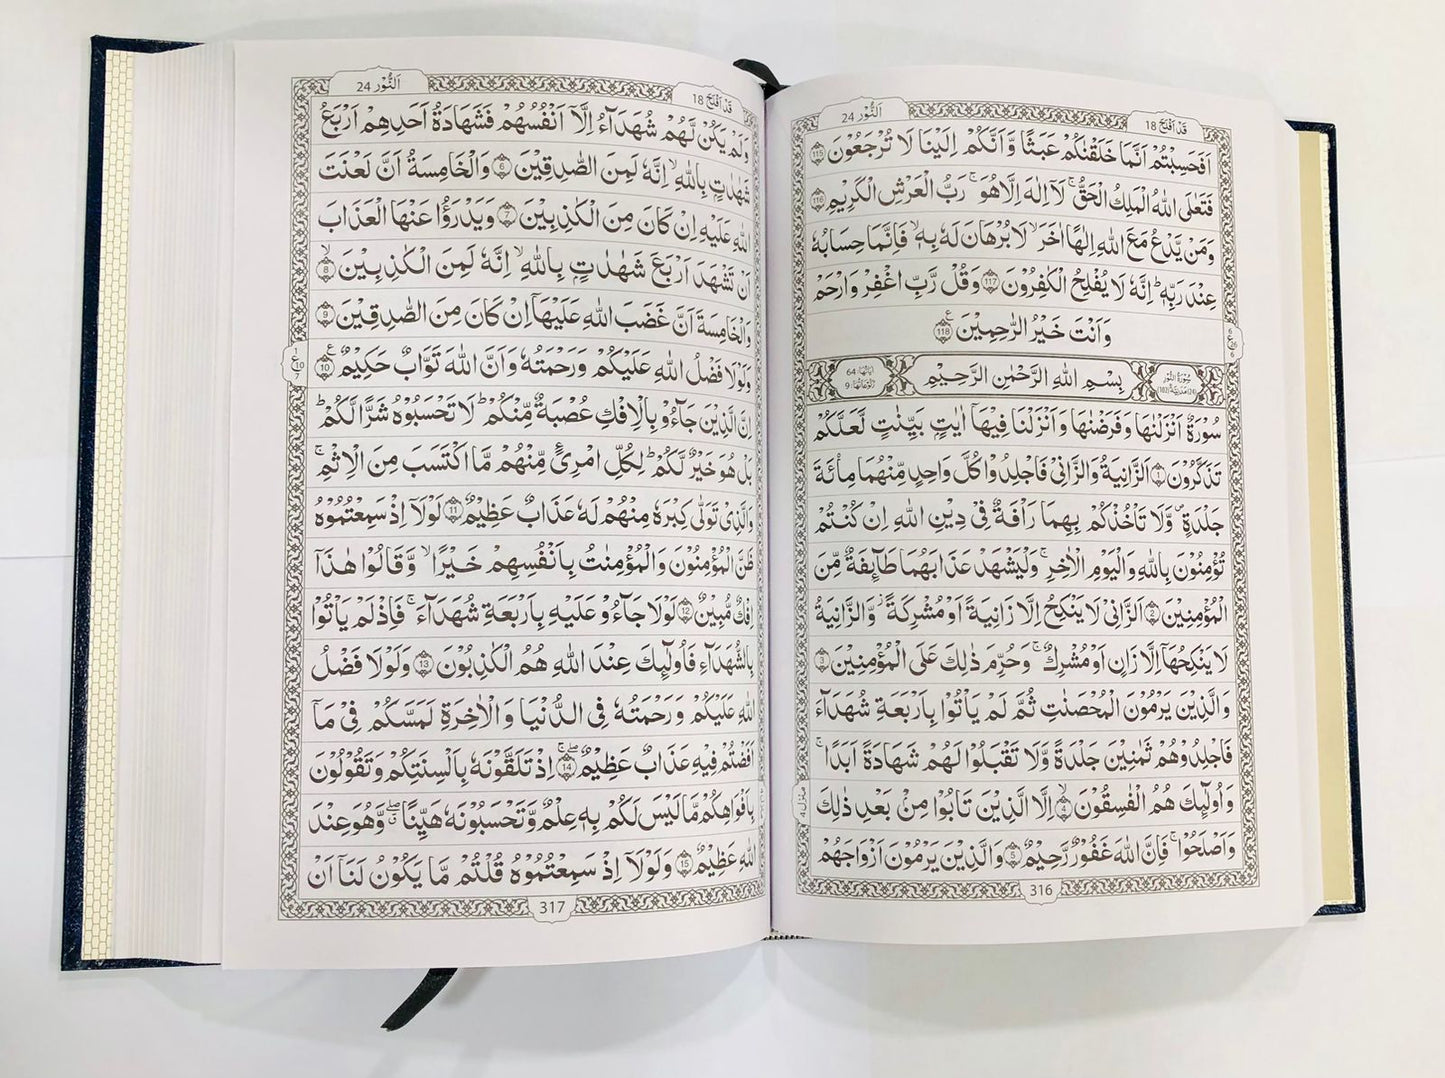 قَدْ اَفْلَحَ 18
اَلنُّوْر 24
اَفَحَسِبْتُمْ اَنَّمَا خَلَقْنٰكُمْ عَبَثًا وَّاَنَّكُمْ اِلَيْنَا لَا تُرْجَعُوْنَ 115
فَتَعٰلَى اللّٰهُ الْمَلِكُ الْحَقُّ ۚ لَآ اِلٰهَ اِلَّا هُوَ ۚ رَبُّ الْعَرْشِ الْكَرِيْمِ 116
وَمَنْ يَّدْعُ مَعَ اللّٰهِ اِلٰهًا اٰخَرَ ۙ لَا بُرْهَانَ لَهٗ بِهٖ ۙ فَاِنَّمَا حِسَابُهٗ
عِنْدَ رَبِّهٖ ؕ اِنَّهٗ لَا يُفْلِحُ الْكٰفِرُوْنَ 117 وَقُلْ رَّبِّ اغْفِرْ وَارْحَمْ
وَاَنْتَ خَيْرُ الرّٰحِمِيْنَ 118
سُوْرَةُ النُّوْر
بِسْمِ اللّٰهِ الرَّحْمٰنِ الرَّحِيْمِ
اٰيَاتُهَا: 64
رُكُوْعَاتُهَا: 9
سُوْرَةٌ اَنْزَلْنٰهَا وَفَرَضْنٰهَا وَاَنْزَلْنَا فِيْهَآ اٰيٰتٍۢ بَيِّنٰتٍ لَّعَلَّكُمْ
تَذَكَّرُوْنَ 1 اَلزَّانِيَةُ وَالزَّانِيْ فَاجْلِدُوْا كُلَّ وَاحِدٍ مِّنْهُمَا مِائَةَ
جَلْدَةٍ ۪ وَّلَا تَاْخُذْكُمْ بِهِمَا رَاْفَةٌ فِيْ دِيْنِ اللّٰهِ اِنْ كُنْتُمْ
تُؤْمِنُوْنَ بِاللّٰهِ وَالْيَوْمِ الْاٰخِرِ ۚ وَلْيَشْهَدْ عَذَابَهُمَا طَآئِفَةٌ مِّنَ
الْمُؤْمِنِيْنَ 2 اَلزَّانِيْ لَا يَنْكِحُ اِلَّا زَانِيَةً اَوْ مُشْرِكَةً ؗ وَّالزَّانِيَةُ
لَا يَنْكِحُهَآ اِلَّا زَانٍ اَوْ مُشْرِكٌ ۚ وَحُرِّمَ ذٰلِكَ عَلَى الْمُؤْمِنِيْنَ 3
وَالَّذِيْنَ يَرْمُوْنَ الْمُحْصَنٰتِ ثُمَّ لَمْ يَاْتُوْا بِاَرْبَعَةِ شُهَدَآءَ
فَاجْلِدُوْهُمْ ثَمٰنِيْنَ جَلْدَةً وَّلَا تَقْبَلُوْا لَهُمْ شَهَادَةً اَبَدًا ۚ
وَاُولٰٓئِكَ هُمُ الْفٰسِقُوْنَ ۙ 4 اِلَّا الَّذِيْنَ تَابُوْا مِنْۢ بَعْدِ ذٰلِكَ
وَاَصْلَحُوْا ۚ فَاِنَّ اللّٰهَ غَفُوْرٌ رَّحِيْمٌ 5 وَالَّذِيْنَ يَرْمُوْنَ اَزْوَاجَهُمْ
منزل 4
316
قَدْ اَفْلَحَ 18
اَلنُّوْر 24
وَلَمْ يَكُنْ لَّهُمْ شُهَدَآءُ اِلَّآ اَنْفُسُهُمْ فَشَهَادَةُ اَحَدِهِمْ اَرْبَعُ
شَهٰدٰتٍۢ بِاللّٰهِ ۙ اِنَّهٗ لَمِنَ الصّٰدِقِيْنَ 6 وَالْخَامِسَةُ اَنَّ لَعْنَتَ
اللّٰهِ عَلَيْهِ اِنْ كَانَ مِنَ الْكٰذِبِيْنَ 7 وَيَدْرَؤُا عَنْهَا الْعَذَابَ
اَنْ تَشْهَدَ اَرْبَعَ شَهٰدٰتٍۢ بِاللّٰهِ ۙ اِنَّهٗ لَمِنَ الْكٰذِبِيْنَ ۙ 8
وَالْخَامِسَةَ اَنَّ غَضَبَ اللّٰهِ عَلَيْهَآ اِنْ كَانَ مِنَ الصّٰدِقِيْنَ 9
وَلَوْلَا فَضْلُ اللّٰهِ عَلَيْكُمْ وَرَحْمَتُهٗ وَاَنَّ اللّٰهَ تَوَّابٌ حَكِيْمٌ 10
اِنَّ الَّذِيْنَ جَآءُوْ بِالْاِفْكِ عُصْبَةٌ مِّنْكُمْ ؕ لَا تَحْسَبُوْهُ شَرًّا لَّكُمْ ؕ
بَلْ هُوَ خَيْرٌ لَّكُمْ ؕ لِكُلِّ امْرِئٍ مِّنْهُمْ مَّا اكْتَسَبَ مِنَ الْاِثْمِ ۚ
وَالَّذِيْ تَوَلّٰى كِبْرَهٗ مِنْهُمْ لَهٗ عَذَابٌ عَظِيْمٌ 11 لَوْلَآ اِذْ سَمِعْتُمُوْهُ
ظَنَّ الْمُؤْمِنُوْنَ وَالْمُؤْمِنٰتُ بِاَنْفُسِهِمْ خَيْرًا ۙ وَّقَالُوْا هٰذَآ
اِفْكٌ مُّبِيْنٌ 12 لَوْلَا جَآءُوْ عَلَيْهِ بِاَرْبَعَةِ شُهَدَآءَ ۚ فَاِذْ لَمْ يَاْتُوْا
بِالشُّهَدَآءِ فَاُولٰٓئِكَ عِنْدَ اللّٰهِ هُمُ الْكٰذِبُوْنَ 13 وَلَوْلَا فَضْلُ
اللّٰهِ عَلَيْكُمْ وَرَحْمَتُهٗ فِي الدُّنْيَا وَالْاٰخِرَةِ لَمَسَّكُمْ فِيْ مَآ
اَفَضْتُمْ فِيْهِ عَذَابٌ عَظِيْمٌ 14 اِذْ تَلَقَّوْنَهٗ بِاَلْسِنَتِكُمْ وَتَقُوْلُوْنَ
بِاَفْوَاهِكُمْ مَّا لَيْسَ لَكُمْ بِهٖ عِلْمٌ وَّتَحْسَبُوْنَهٗ هَيِّنًا ۖ وَّهُوَ عِنْدَ
اللّٰهِ عَظِيْمٌ 15 وَلَوْلَآ اِذْ سَمِعْتُمُوْهُ قُلْتُمْ مَّا يَكُوْنُ لَنَآ اَنْ
317